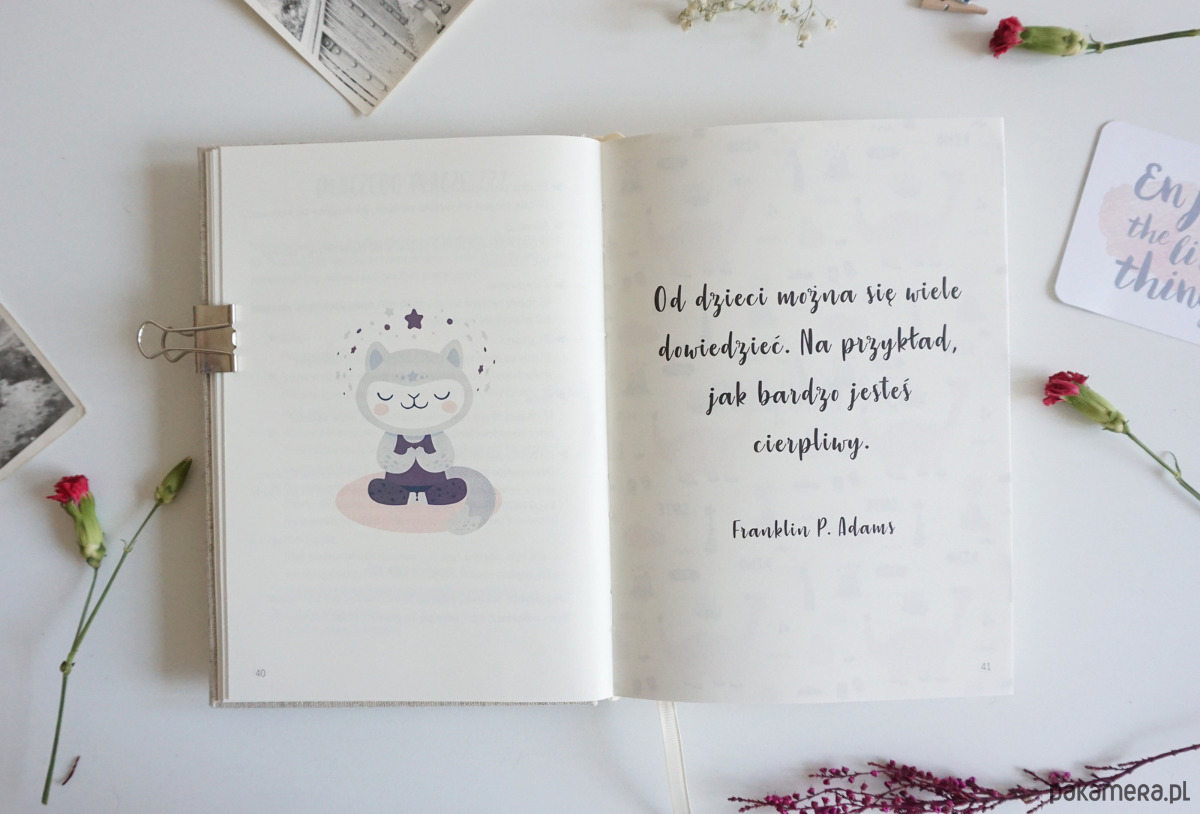 Od dzieci można się wiele
dowiedzieć. Na przykład,
jak bardzo jesteś
cierpliwy.
Franklin P. Adams
40
41
the
pakamera.pl